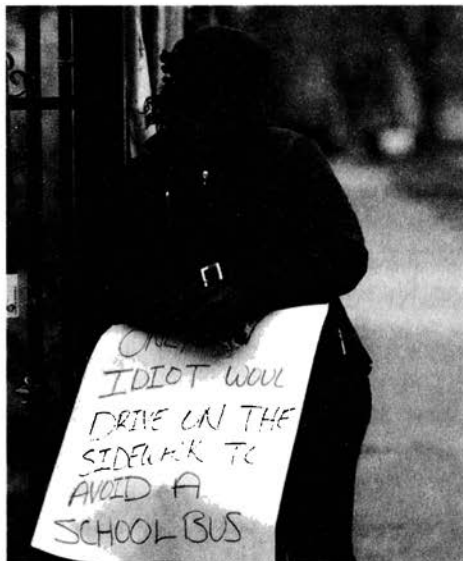 ONLY
IDIOT WOUL
DRIVE ON THE
SIDEWALK TO
AVOID A
SCHOOL BUS